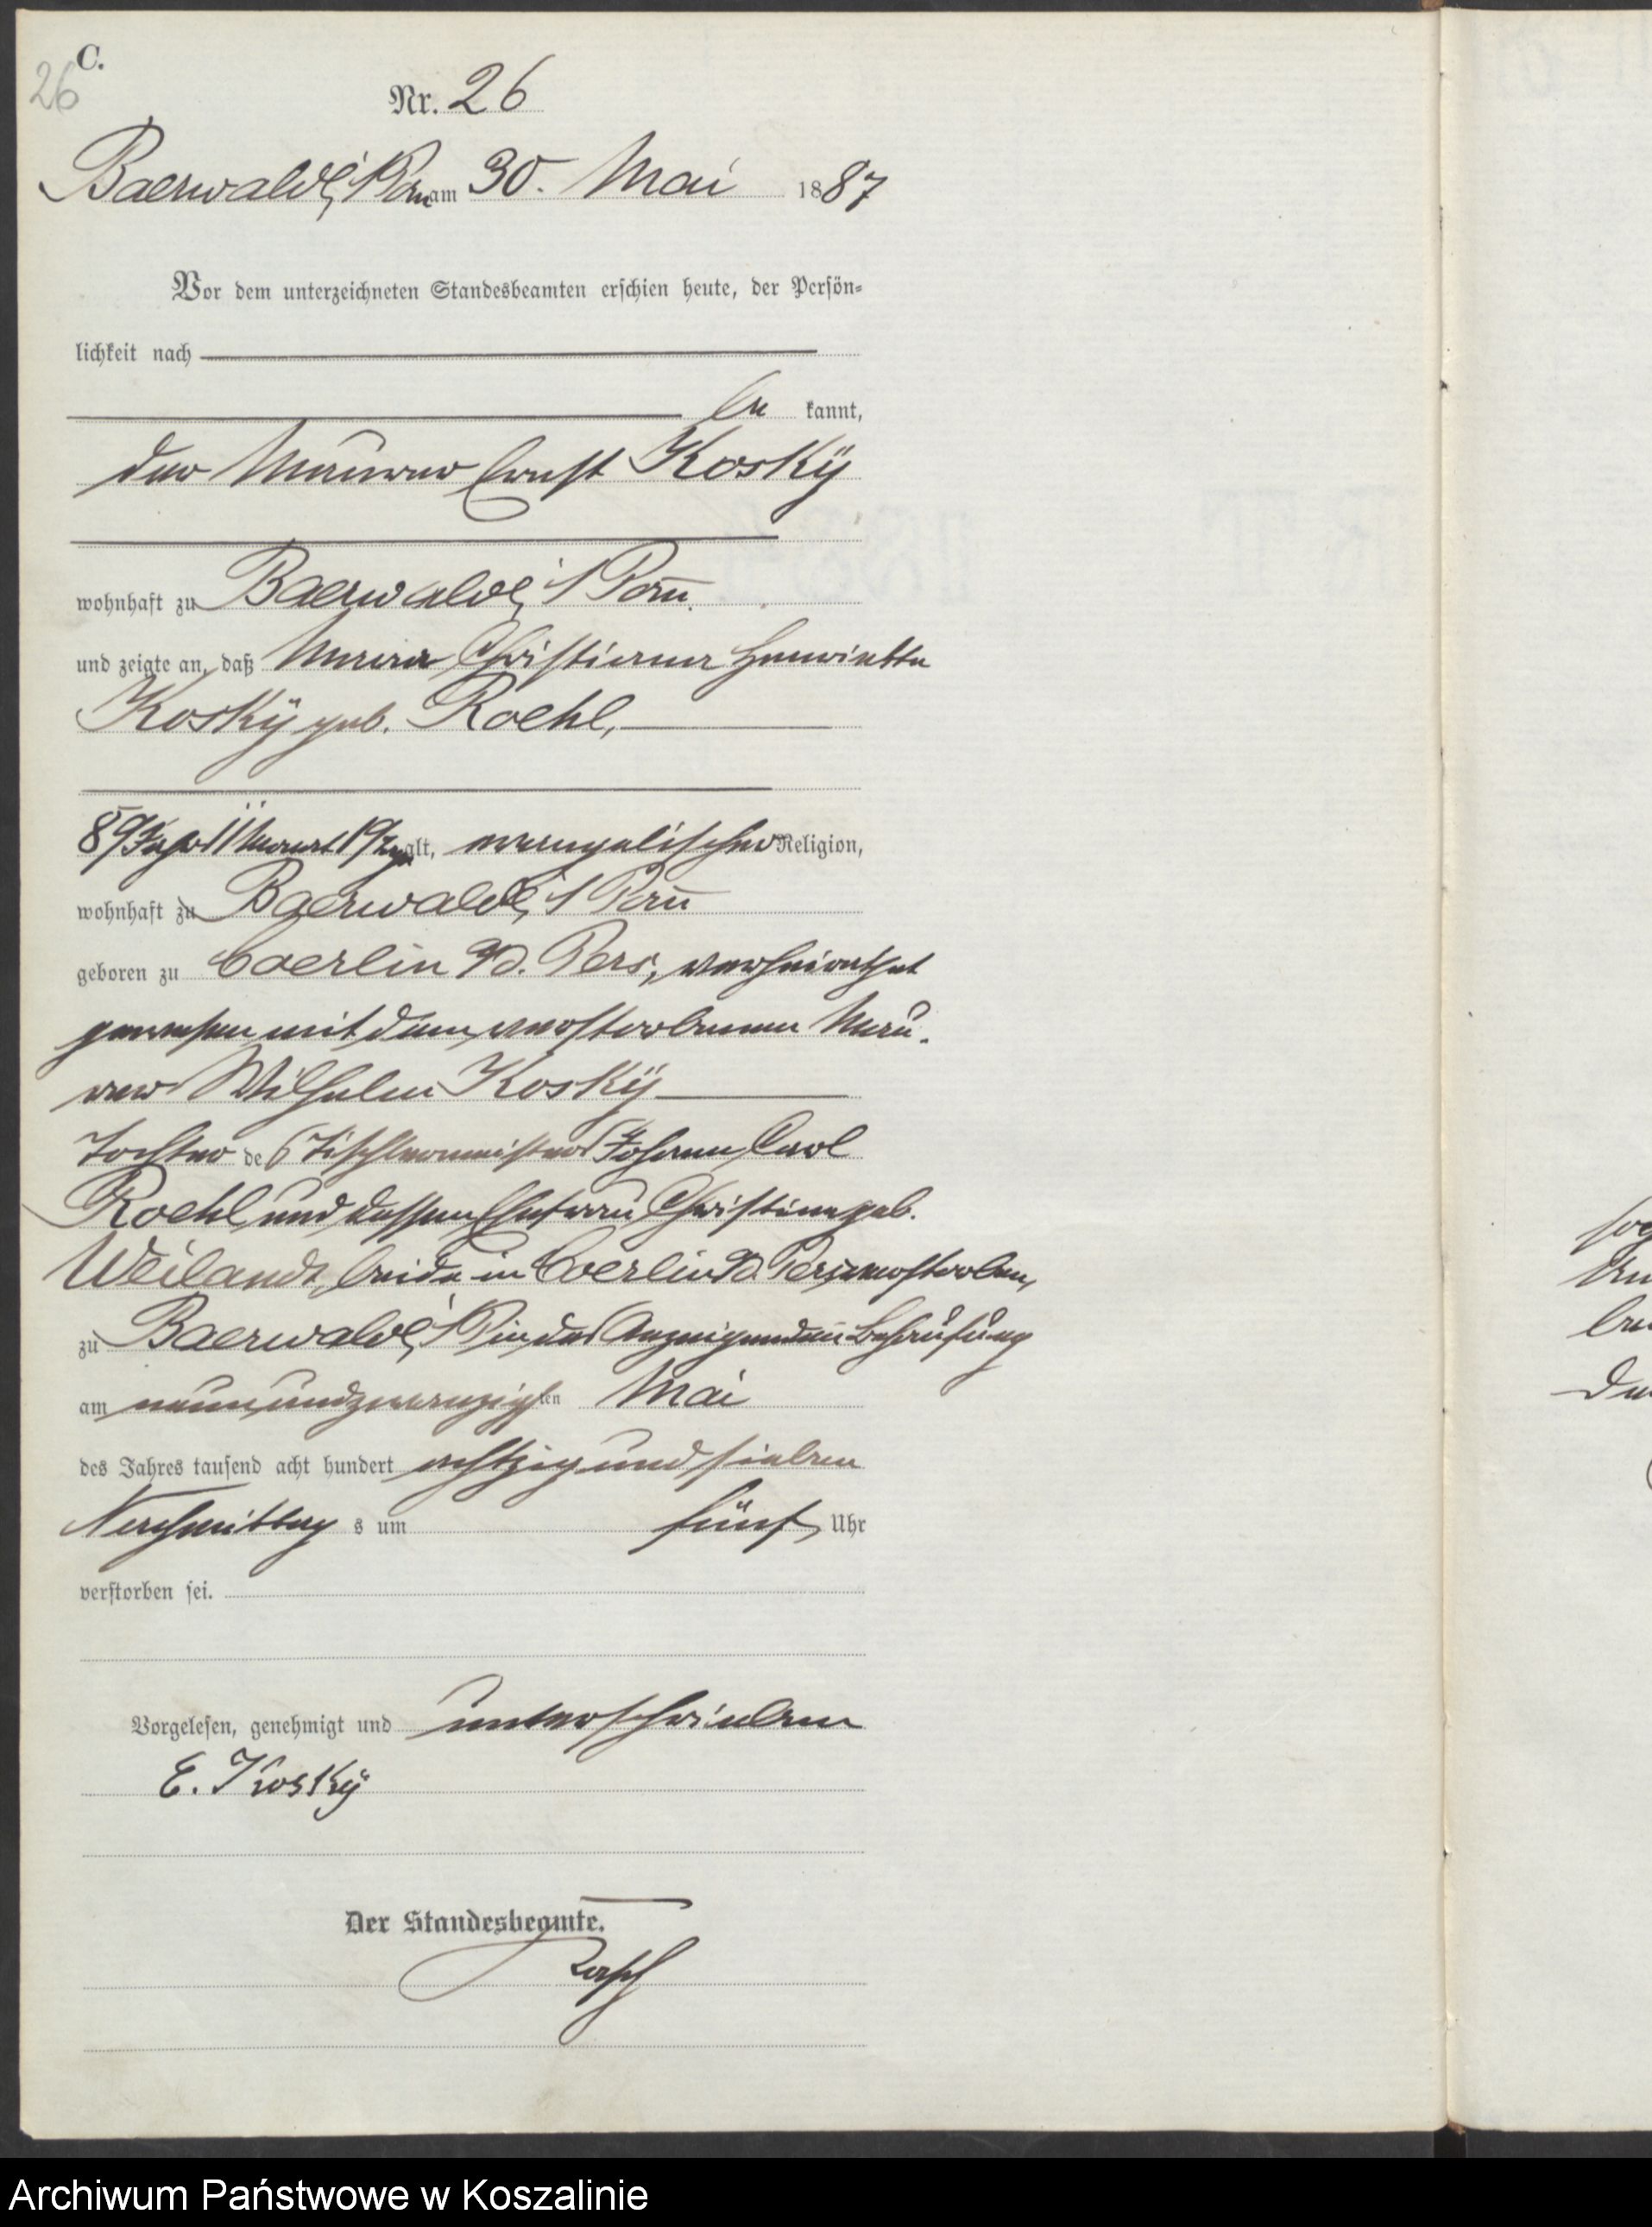 C.
26
Nr. 26
Baerwalde i/Pom am 30. Mai 1887
Vor dem unterzeichneten Standesbeamten erschien heute, der Persön-
lichkeit nach
be kannt,
der Maurer Ernst Koskÿ
wohnhaft zu Baerwalde i/Pom̄.
und zeigte an, daß Maria Christiana Henriette
Koskÿ geb. Roehl,
89 Jahr 11 Monat 19 Tage alt, evangelischer Religion,
wohnhaft zu Baerwalde i/Pom̄
geboren zu Coerlin a/d. Pers., verheirathet
gewesen mit dem verstorbenen Mau-
rer Wilhelm Koskÿ
Tochter des Tischlermeisters Johann Carl
Roehl und dessen Ehefrau Christine geb.
Weilandt, beide in Coerlin a/d Pers. verstorben,
zu Baerwalde i/P in des Anzeigenden Behausung
am neunundzwanzigsten Mai
des Jahres tausend acht hundert achtzig und sieben
Nachmittag s um fünf Uhr
verstorben sei.
Vorgelesen, genehmigt und unterschrieben
E. Koskÿ
Der Standesbeamte.
Archiwum Państwowe w Koszalinie